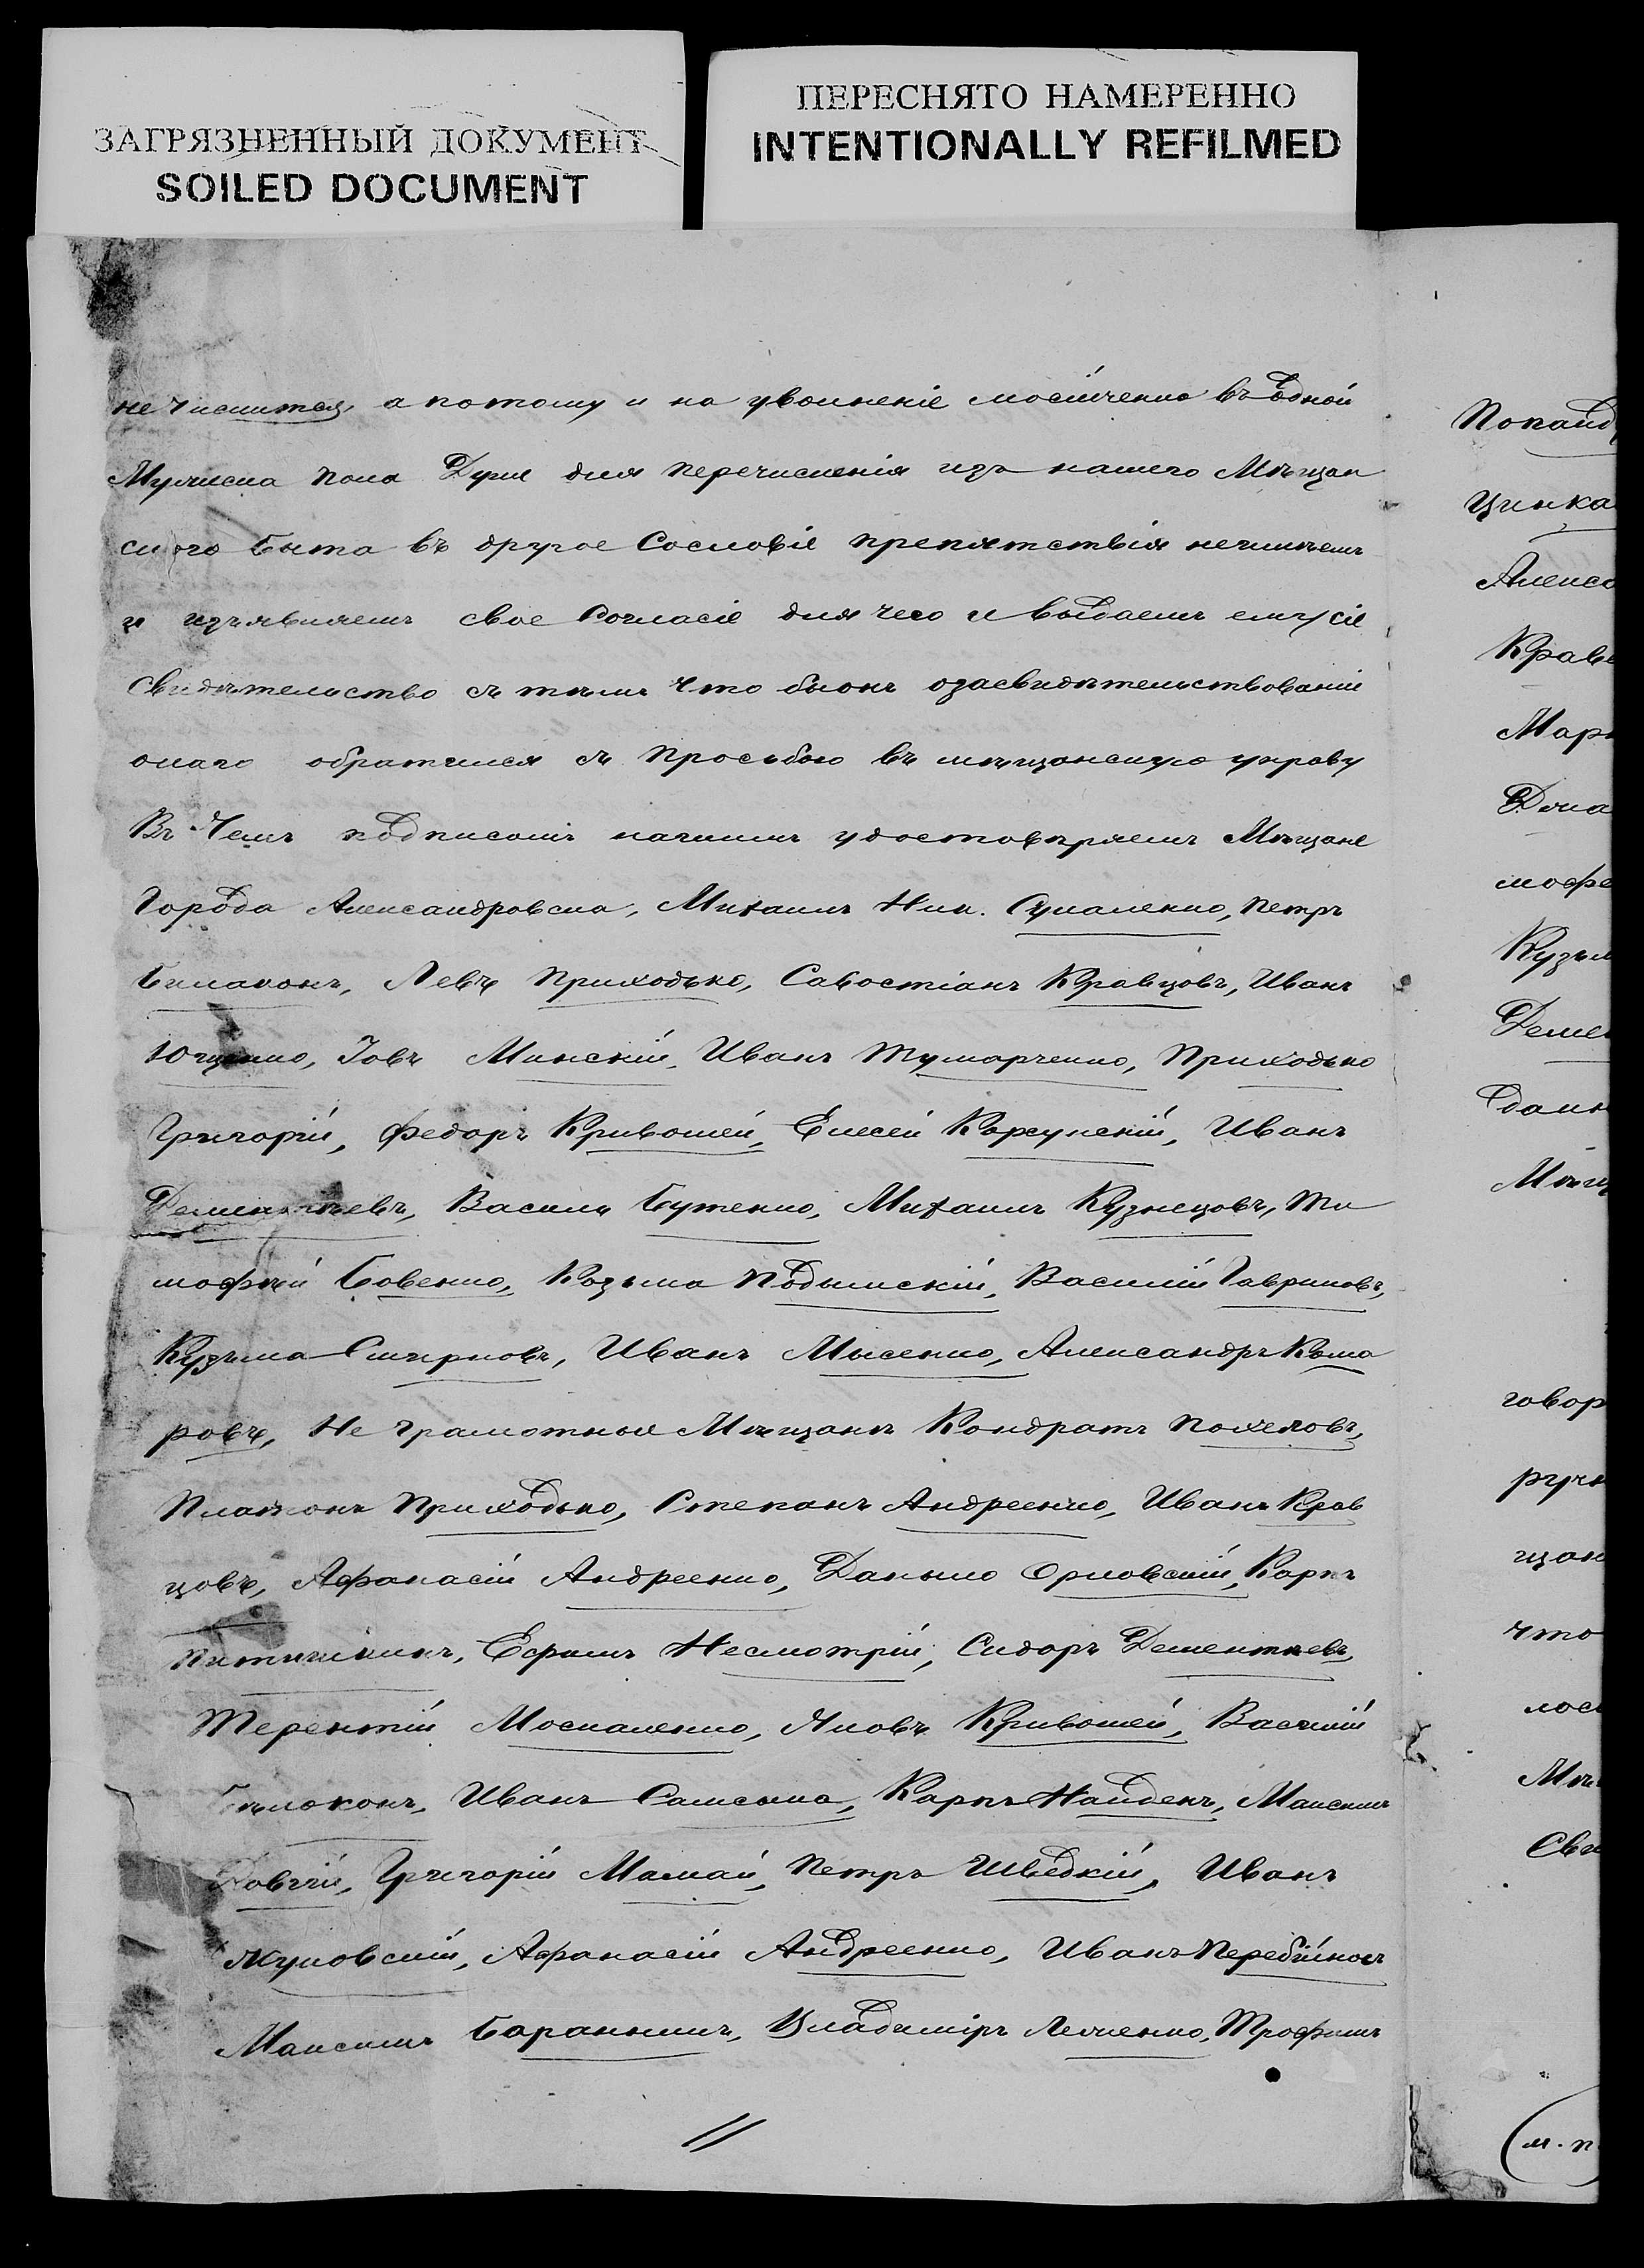 ЗАГРЯЗНЕННЫЙ ДОКУМЕНТ
SOILED DOCUMENT
ПЕРЕСНЯТО НАМЕРЕННО
INTENTIONALLY REFILMED
не числится, а потому и на увольненіе въ одной
Мужеска пола Душе для перечисленія изъ нашего Мѣщан
скаго быта въ другое Сословіе препятствія неимѣемъ
и изъявляемъ свое Согласіе для чего и выдаемъ ему сіе
Свидѣтельство съ тѣмъ что бы онъ озасвидѣтельствованіи
онаго обратился съ просьбою въ мѣщанскую управу
Въ Чемъ подписомъ нашимъ удостовѣряемъ Мѣщане
Города Александровска, Михаилъ Ник. Сукаленко, Петръ
Билаконъ, Левъ Приходько, Савостіанъ Кравцовъ, Иванъ
Ющенко, Іовъ Минскій, Иванъ Тумарченко, Приходько
Григорій, Федоръ Кривошей, Елесей Корсунскій, Иванъ
Дементьевъ, Василь Бутенко, Михаилъ Кузнецовъ, Ти
мофѣй Бовенко, Козьма Подымскій, Василій Гавриловъ,
Кузьма Смирновъ, Иванъ Мысенко, Александръ Кома
ровъ, Не грамотные Мѣщане Кондратъ Пожеловъ,
Платонъ Приходько, Степанъ Андреенко, Иванъ Крав
цовъ, Афанасій Андреенко, Даныло Орловскій, Карпъ
Ефимъ Несмотрій, Сидоръ Дементьевъ,
Терентій Москаленко, Яковъ Кривошей, Василій
Бѣлоконь, Иванъ Самсыка, Карпъ Найденъ, Максимъ
Довгій, Григорій Мамай, Петръ Шведкій, Иванъ
Жуковскій, Афанасій Андреенко, Иванъ Перебійносъ
Максимъ Бараникъ, Владиміръ Лемченко, Трофимъ
Попайд
цинка
Алекса
Кравц
Мар
Дми
мофе
Кузьм
Демен
Дани
Мѣщ
говор
ручн
щан
что
лось
Мѣ
Сви
(м. п